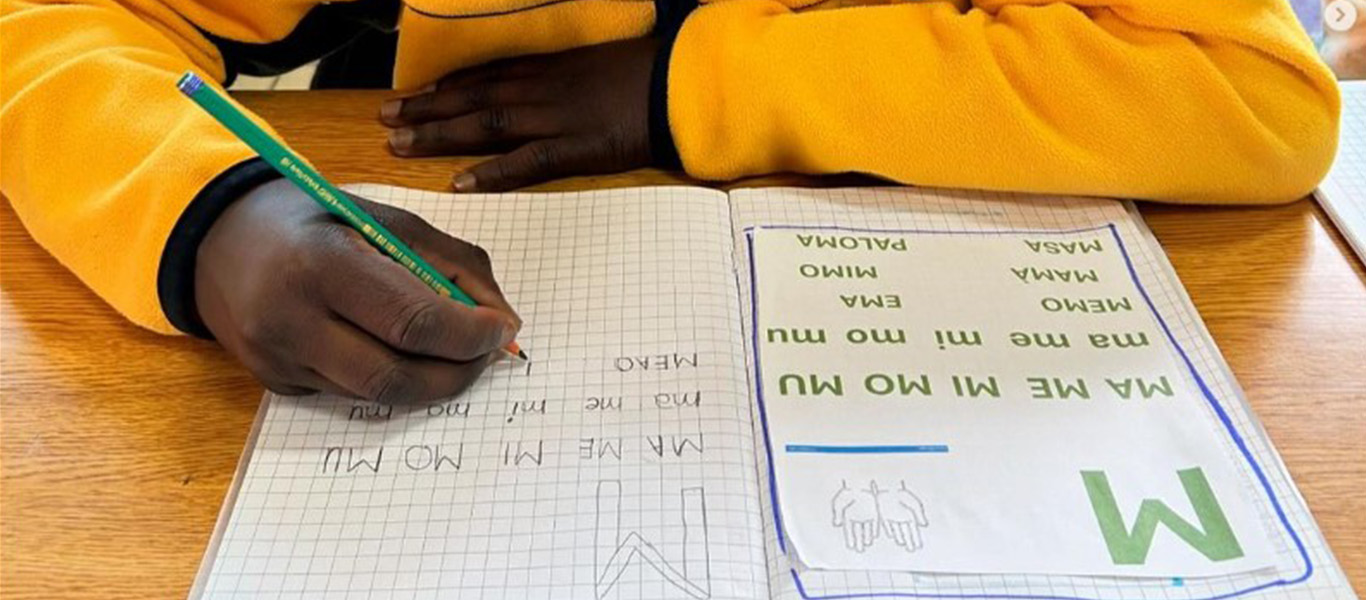 M
MA ME MI MO MU
ma me mi mo mu
MEMO EMA
MAMÀ MIMO
MASA PALOMA
M
MA ME MI MO MU
ma me mi mo mu
MEMO